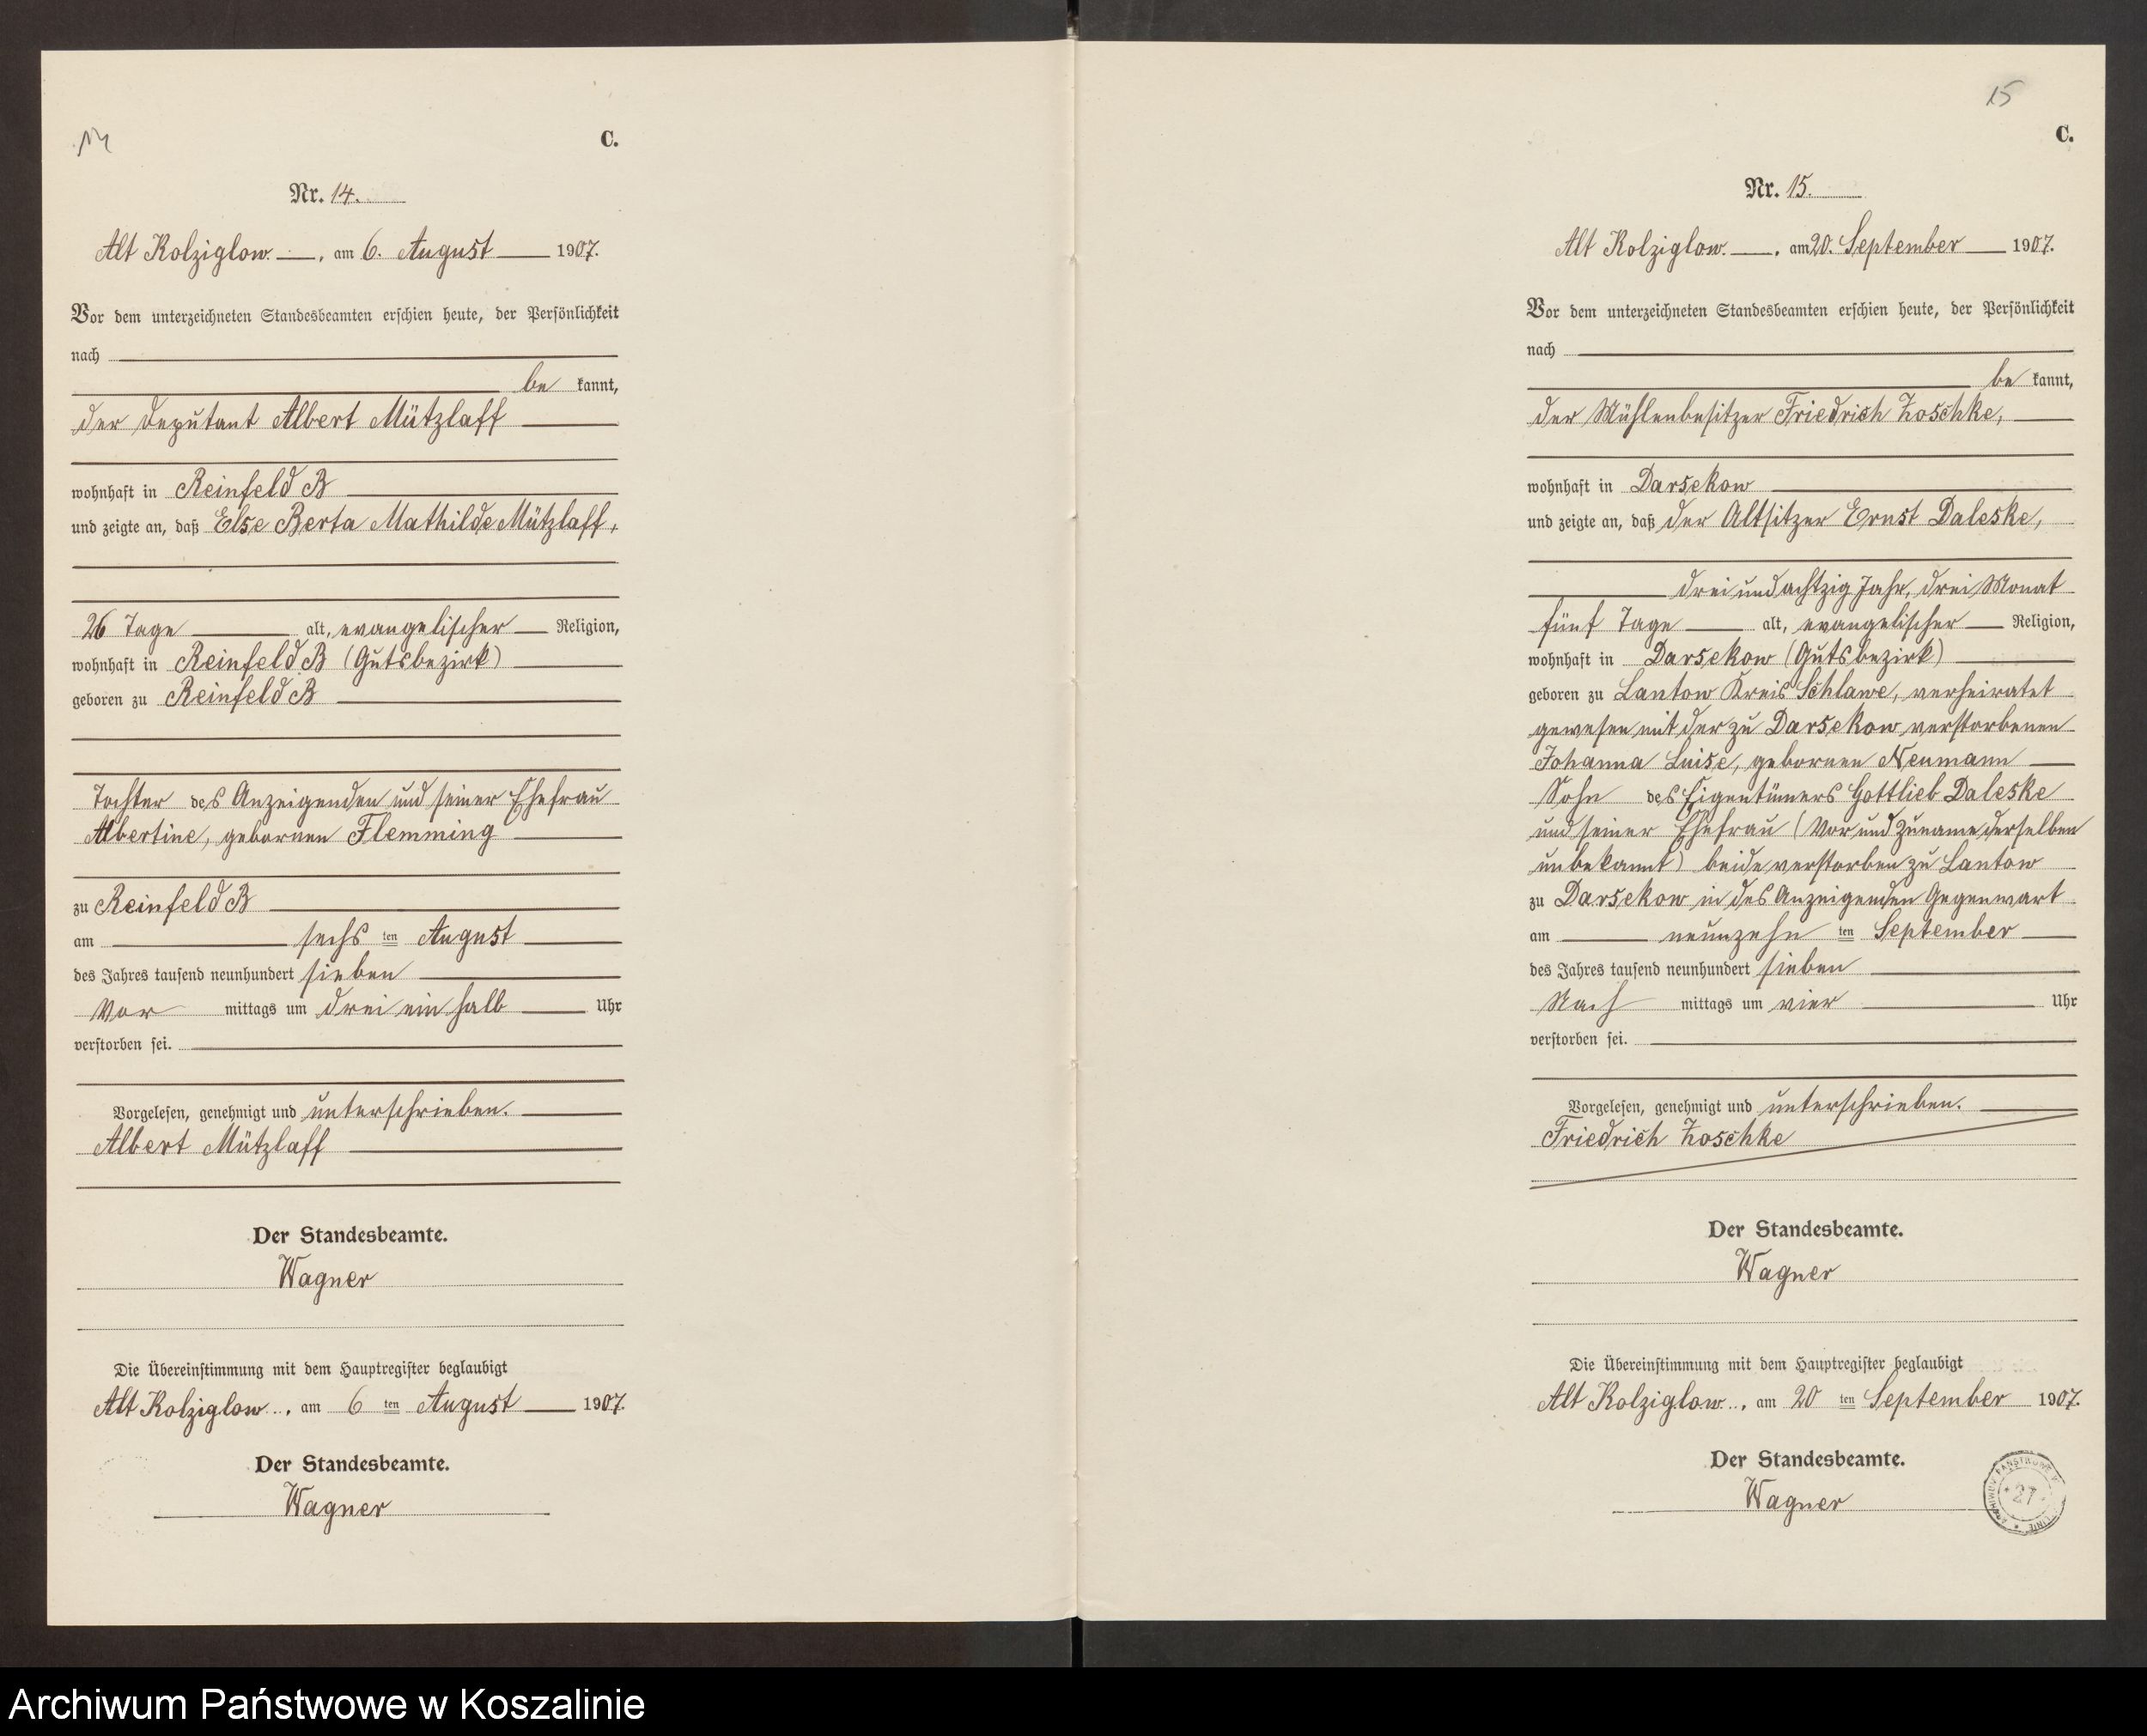 14
C.
Nr. 14.
Alt Kolziglow., am 6. August 1907.
Vor dem unterzeichneten Standesbeamten erschien heute, der Persönlichkeit
nach
be kannt,
der Deputant Albert Mützlaff
wohnhaft in Reinfeld B
und zeigte an, daß Else Berta Mathilde Mützlaff,
26 Tage alt, evangelischer Religion,
wohnhaft in Reinfeld B (Gutsbezirk)
geboren zu Reinfeld B
Tochter des Anzeigenden und seiner Ehefrau
Albertine, gebornen Flemming
zu Reinfeld B
am sechs ten August
des Jahres tausend neunhundert sieben
Vor mittags um drei ein halb Uhr
verstorben sei.
Vorgelesen, genehmigt und unterschrieben.
Albert Mützlaff
Der Standesbeamte.
Wagner
Die Übereinstimmung mit dem Hauptregister beglaubigt
Alt Kolziglow., am 6 ten August 1907.
Der Standesbeamte.
Wagner
15
C.
Nr. 15.
Alt Kolziglow., am 20. September 1907.
Vor dem unterzeichneten Standesbeamten erschien heute, der Persönlichkeit
nach
be kannt,
der Mühlenbesitzer Friedrich Zoschke,
wohnhaft in Darsekow
und zeigte an, daß der Altsitzer Ernst Daleske,
drei und achtzig Jahr, drei Monat
fünf Tage alt, evangelischer Religion,
wohnhaft in Darsekow (Gutsbezirk)
geboren zu Lantow Kreis Schlawe, verheiratet
gewesen mit der zu Darsekow verstorbenen
Johanna Luise, gebornen Neumann
Sohn des Eigentümers Gottlieb Daleske
und seiner Ehefrau (Vor und Zuname derselben
unbekannt) beide verstorben zu Lantow
zu Darsekow in des Anzeigenden Gegenwart
am neunzehn ten September
des Jahres tausend neunhundert sieben
Nach mittags um vier Uhr
verstorben sei.
Vorgelesen, genehmigt und unterschrieben.
Friedrich Zoschke
Der Standesbeamte.
Wagner
Die Übereinstimmung mit dem Hauptregister beglaubigt
Alt Kolziglow., am 20 ten September 1907.
Der Standesbeamte.
Wagner
27
Archiwum Państwowe w Koszalinie